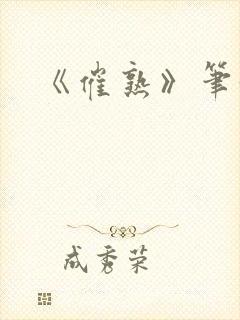 《催熟》筆
成秀荣